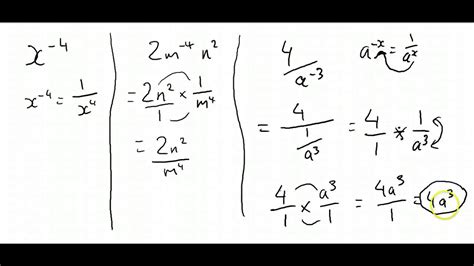 x⁻⁴
x⁻⁴ = 1/x⁴
2m⁻⁴n²
= 2n²/1 × 1/m⁴
= 2n²/m⁴
4/a⁻³
a⁻ˣ = 1/aˣ
= 4/(1/a³) = 4/1 * 1/a³
4/1 × a³/1 = 4a³/1 = 4a³